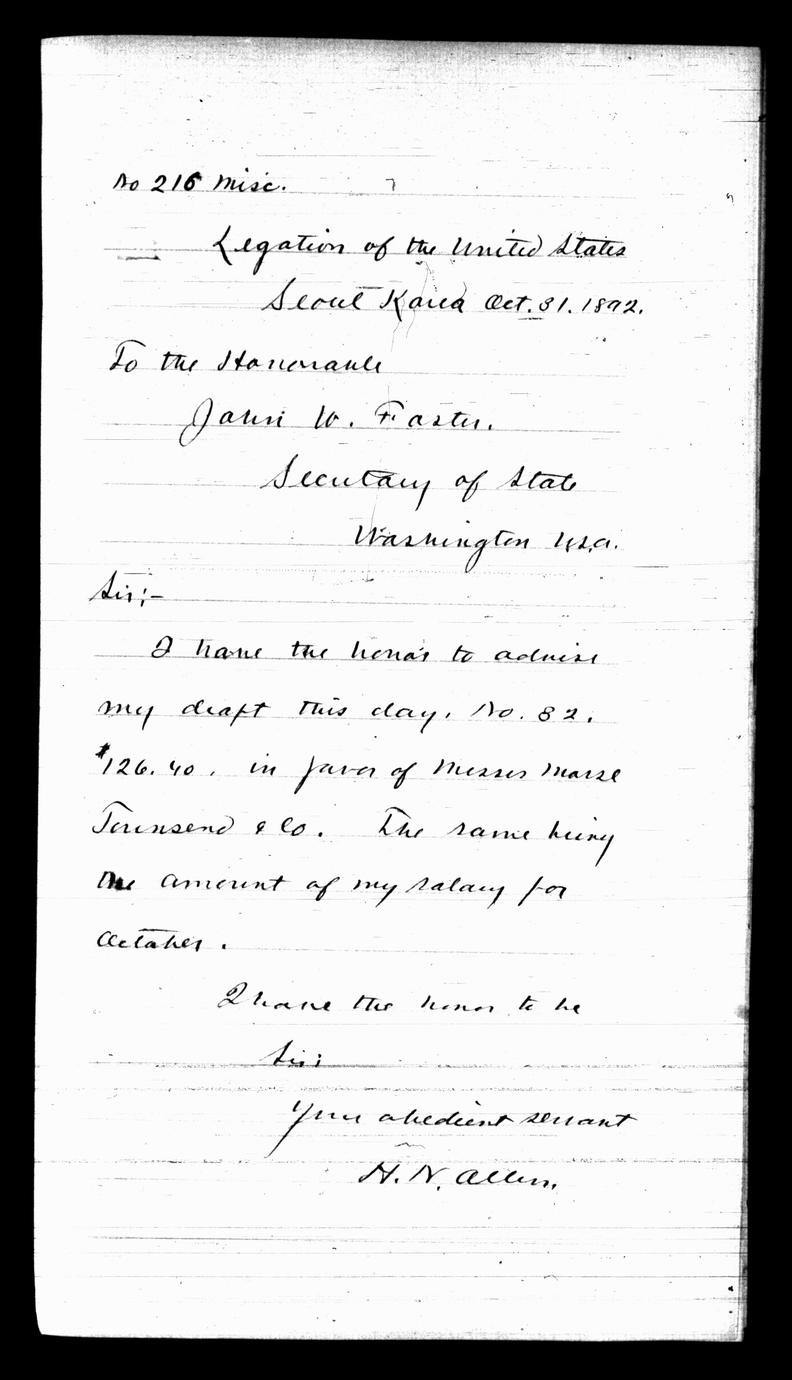 No 216 Misc.
Legation of the United States
Seoul Korea Oct. 31. 1892.
To the Honorable
John W. Foster.
Secretary of State
Washington U.S.A.
Sir;-
I have the honor to advise
my draft this day. No. 82.
$126.40. in favor of Messrs Morse
Townsend & Co. The same being
the amount of my salary for
October.
I have the honor to be
Sir:
Your obedient servant
H. N. Allen.